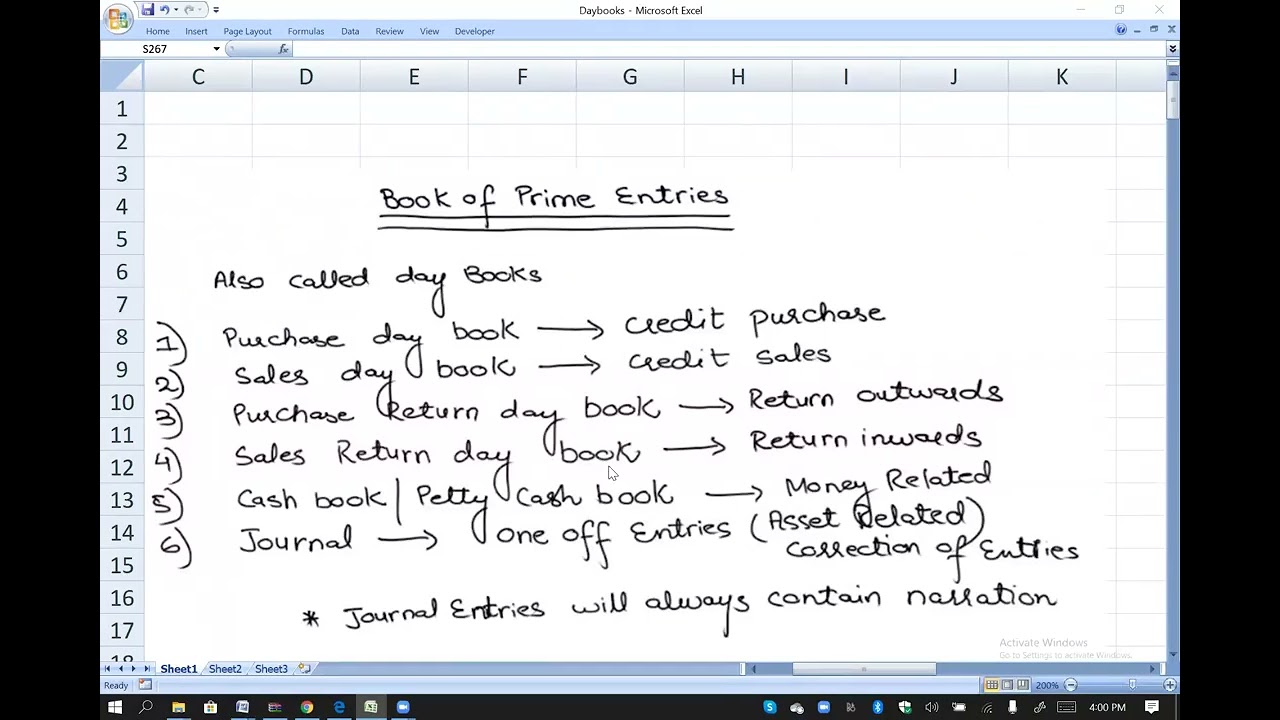 Daybooks - Microsoft Excel
Home Insert Page Layout Formulas Data Review View Developer
S267 fx
C D E F G H I J K
1
2
3
4
5
6
7
8
9
10
11
12
13
14
15
16
17
18
Book of Prime Entries
Also called day Books
1) Purchase day book → credit purchase
2) Sales day book → credit sales
3) Purchase Return day book → Return outwards
4) Sales Return day book → Return inwards
5) Cash book | Petty Cash book → Money Related
6) Journal → One off Entries (Asset Related)
correction of Entries
* Journal Entries will always contain narration
Activate Windows
Go to Settings to activate Windows.
Sheet1 Sheet2 Sheet3
Ready 200%
4:00 PM